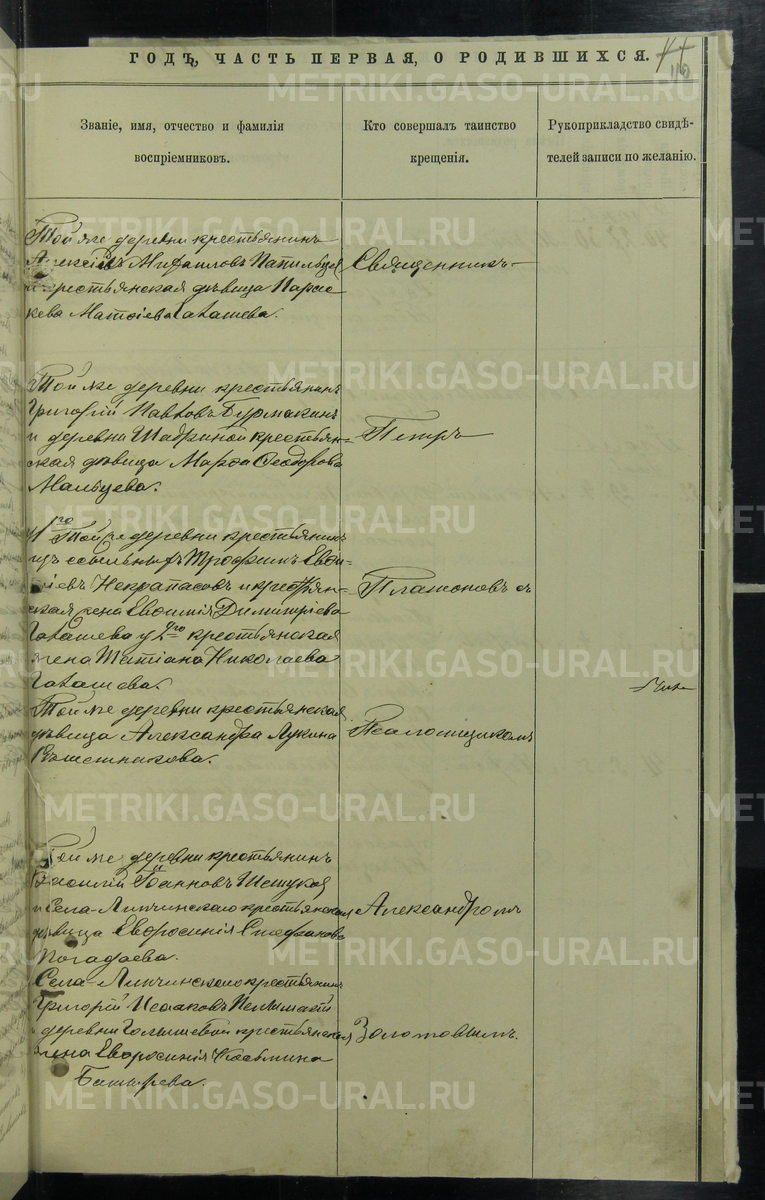 ГОДЪ, ЧАСТЬ ПЕРВАЯ, О РОДИВШИХСЯ.
Званіе, имя, отчество и фамилія
воспріемниковъ.
Кто совершалъ таинство
крещенія.
Рукоприкладство свидѣ-
телей записи по желанію.
Той же деревни крестьянинъ
Михаиловъ
крестьянская дѣвица Парас-
кева
Священникъ
Той же деревни крестьянинъ
Григорій Павловъ Бурмакинъ
и деревни Шадриной крестьян-
ская дѣвица Марѳа Ѳеодорова
Мальцева.
Петръ
1го Той же деревни крестьянинъ
изъ ссыльныхъ Трофимъ
и крестьян-
ская жена Димитріева
у 2го крестьянская
жена Татіана Николаева
Платоновъ съ
Той же деревни крестьянская
дѣвица Александра Лукина
Псаломщикомъ
Той же деревни крестьянинъ
Василій Іоанновъ
и Села Липчинскаго крестьянская
дѣвица Евфросинія Стефанова
Погадаева.
Александромъ
Села Липчинскаго крестьянинъ
Григорій Исааковъ
деревни Голышевой крестьянская
жена Евфросинія Косьмина
Батырева.
Золотовымъ.
METRIKI.GASO-URAL.RU